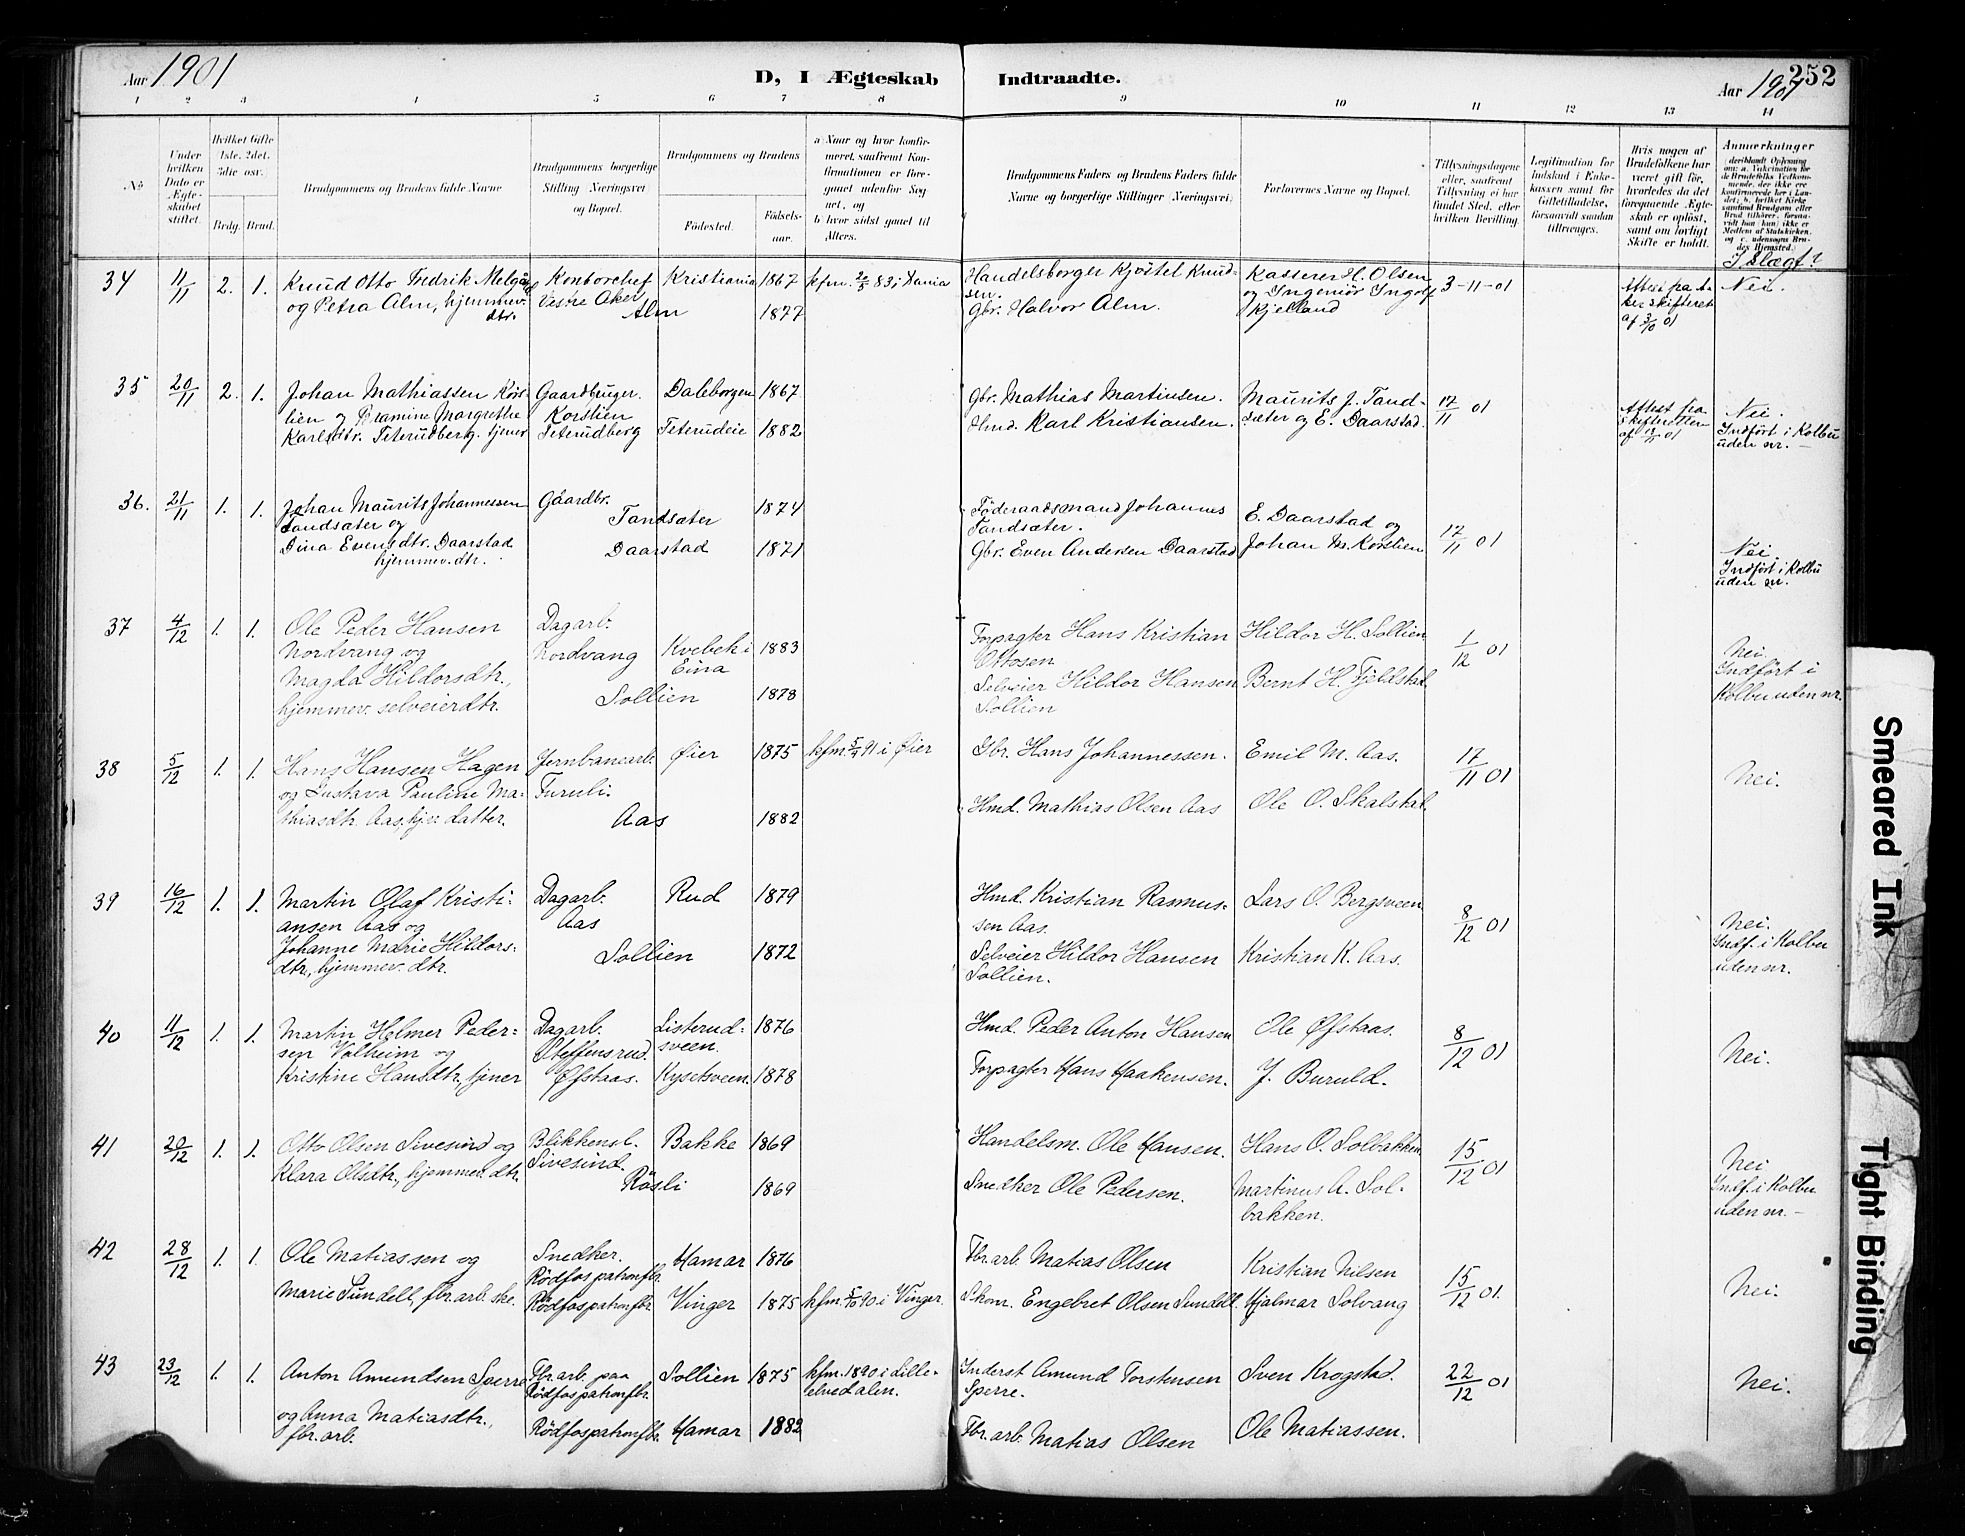 Aar 1901
D, I Ægteskab
Indtraadte.
252
Aar 1901
1 2 3 4 5 6 7 8 9 10 11 12 13 14
No
Under hvilken Dato er Ægteskabet stiftet.
Hvilket Gifte 1ste, 2det, 3die osv.
Brdg. Brud.
Brudgommens og Brudens fulde Navne
Brudgommens borgerlige Stilling (Næringsvei) og Bopæl.
Brudgommens og Brudens
Fødested.
Fødsels-aar.
a) Naar og hvor konfirmeret, saafremt Konfirmationen er foregaaet udenfor Sognet, og
b) hvor sidst gaaet til Alters.
Brudgommens Faders og Brudens Faders fulde Navne og borgerlige Stillinger (Næringsvei).
Forlovernes Navne og Bopæl.
Tillysningsdagene eller, saafremt Tillysning ei har fundet Sted, efter hvilken Bevilling
Legitimation for Indskud i Enkekassen samt for Giftetilladelse, forsaavidt saadan tiltrænges.
Hvis nogen af Brudefolkene har været gift før, hvorledes da det foregaaende Ægteskab er opløst, samt om lovligt Skifte er holdt.
Anmærkninger
I Slægt?
34
11/11
2. 1.
Knud Otto Fredrik Melgård
og Petra Alm, hjemmev.
dtr.
Kontorchef
Vestre Aker
Alm
Kristiania 1867
1877
kfm. 20/5 83 i Dania
Handelsborger Kjöstel Knud-
sen.
Gbr. Halvor Alm.
Kasserer H. Olsen
og Ingeniør Ingolf
Kjelland
3-11-01
Attest fra A-
ker skifteret
af 3/10 01
Nei.
35
20/11
2. 1.
Johan Mathiassen Kors-
lien og Bramine Margrethe
Karlsdtr. Teterudberg, tjener
Gaardbruger.
Korslien
Teterudberg
Daleborgen 1867
Teterudeie 1882
Gbr. Mathias Martinsen.
Hmd. Karl Kristiansen.
Maurits J. Tand-
sæter og E. Daarstad.
17/11 01
Attest fra
Skifteretten
af 12/11 01
Nei.
Indført i Kolbu
uden nr. –
36.
21/11
1. 1.
Johan Maurits Johannessen
Tandsæter og
Dina Evensdtr. Daarstad
hjemmev. dtr.
Gaardbr.
Tandsæter
Daarstad
1874
1871
Föderaadsmand Johannes
Tandsæter.
Gbr. Even Andersen Daarstad
E. Daarstad og
Johan M. Korslien
17/11 01
Nei.
Indført i Kolbu
uden nr.
37
4/12
1. 1.
Ole Peder Hansen
Nordvang og
Magda Hildorsdtr.,
hjemmev. selveierdtr.
Dagarb.
Nordvang
Sollien
Kvebek i
Eina
1883
1878
Forpagter Hans Kristian
Ottosen
Selveier Hildor Hansen
Sollien
Hildor H. Sollien
Bernt H. Fjeldstad
1/12 01
Nei.
Indført i
Kolbu uden nr.
38
5/12
1. 1.
Hans Hansen Hagen
og Gustava Pauline Ma-
thiasdtr. Aas, hjv. datter.
Jernbanearb.
Furuli.
Aas
Øier 1875
1882
kfm. 5/4 91 i Øier
Gbr. Hans Johannessen.
Hmd. Mathias Olsen Aas
Emil M. Aas.
Ole O. Skalstad
17/11 01
Nei.
39
16/12
1. 1.
Martin Olaf Kristi-
ansen Aas og
Johanne Marie Hildors-
dtr., hjemmev. dtr.
Dagarb.
Aas
Sollien
Rud 1879
1872
Hmd. Kristian Rasmus-
sen Aas.
Selveier Hildor Hansen
Sollien.
Lars O. Bergsveen
Kristian K. Aas.
8/12 01
Nei.
Indf. i Kolbu
uden nr.
40
11/12
1. 1.
Martin Helmer Peder-
sen Valheim og
Kristine Hansdtr., tjener
Dagarb.
Steffensrud.
Øfstaas.
Listerud-
sveen. 1876
Kyselsveen. 1878
Hmd. Peder Anton Hansen
Forpagter Hans Haakensen.
Ole Øfstaas.
J. Buruld.
8/12 01
Nei.
41
20/12
1. 1.
Otto Olsen Sivesind og
Klara Olsdtr., hjemmev. dtr.
Blikkensl.
Sivesind.
Røsli
Bakke 1869
1869
Handelsm. Ole Hansen.
Snedker Ole Pedersen.
Hans O. Solbakken
Martinus A. Sol-
bakken.
15/12 01
Nei
Indf. i Kolbu
uden nr. –
42
28/12
1. 1.
Ole Matiassen og
Marie Sundell, fbr. arb. ske.
Snedker.
Rødfos patronfbr.
Rødfos patronfbr.
Hamar 1876
Vinger 1875
kfm. 5/10 90 i Vinger.
Fbr. arb. Matias Olsen
Skom. Engebret Olsen Sundell.
Kristian Nilsen
Hjalmar Solvang
15/12 01.
Nei.
43
23/12
1. 1.
Anton Amundsen Sperre
og Anna Matiasdtr.,
fbr. arb.
Fbr. arb. paa
Rødfos patronfbr.
Rødfos patronfbr.
Sollien 1875
Hamar 1882
kfm. 1890 i Lille-
elvedalen.
Inderst Amund Torstensen
Sperre.
Fbr. arb. Matias Olsen
Sven Krogstad.
Ole Matiassen.
22/12 01
Nei.
Smeared Ink
Tight Binding